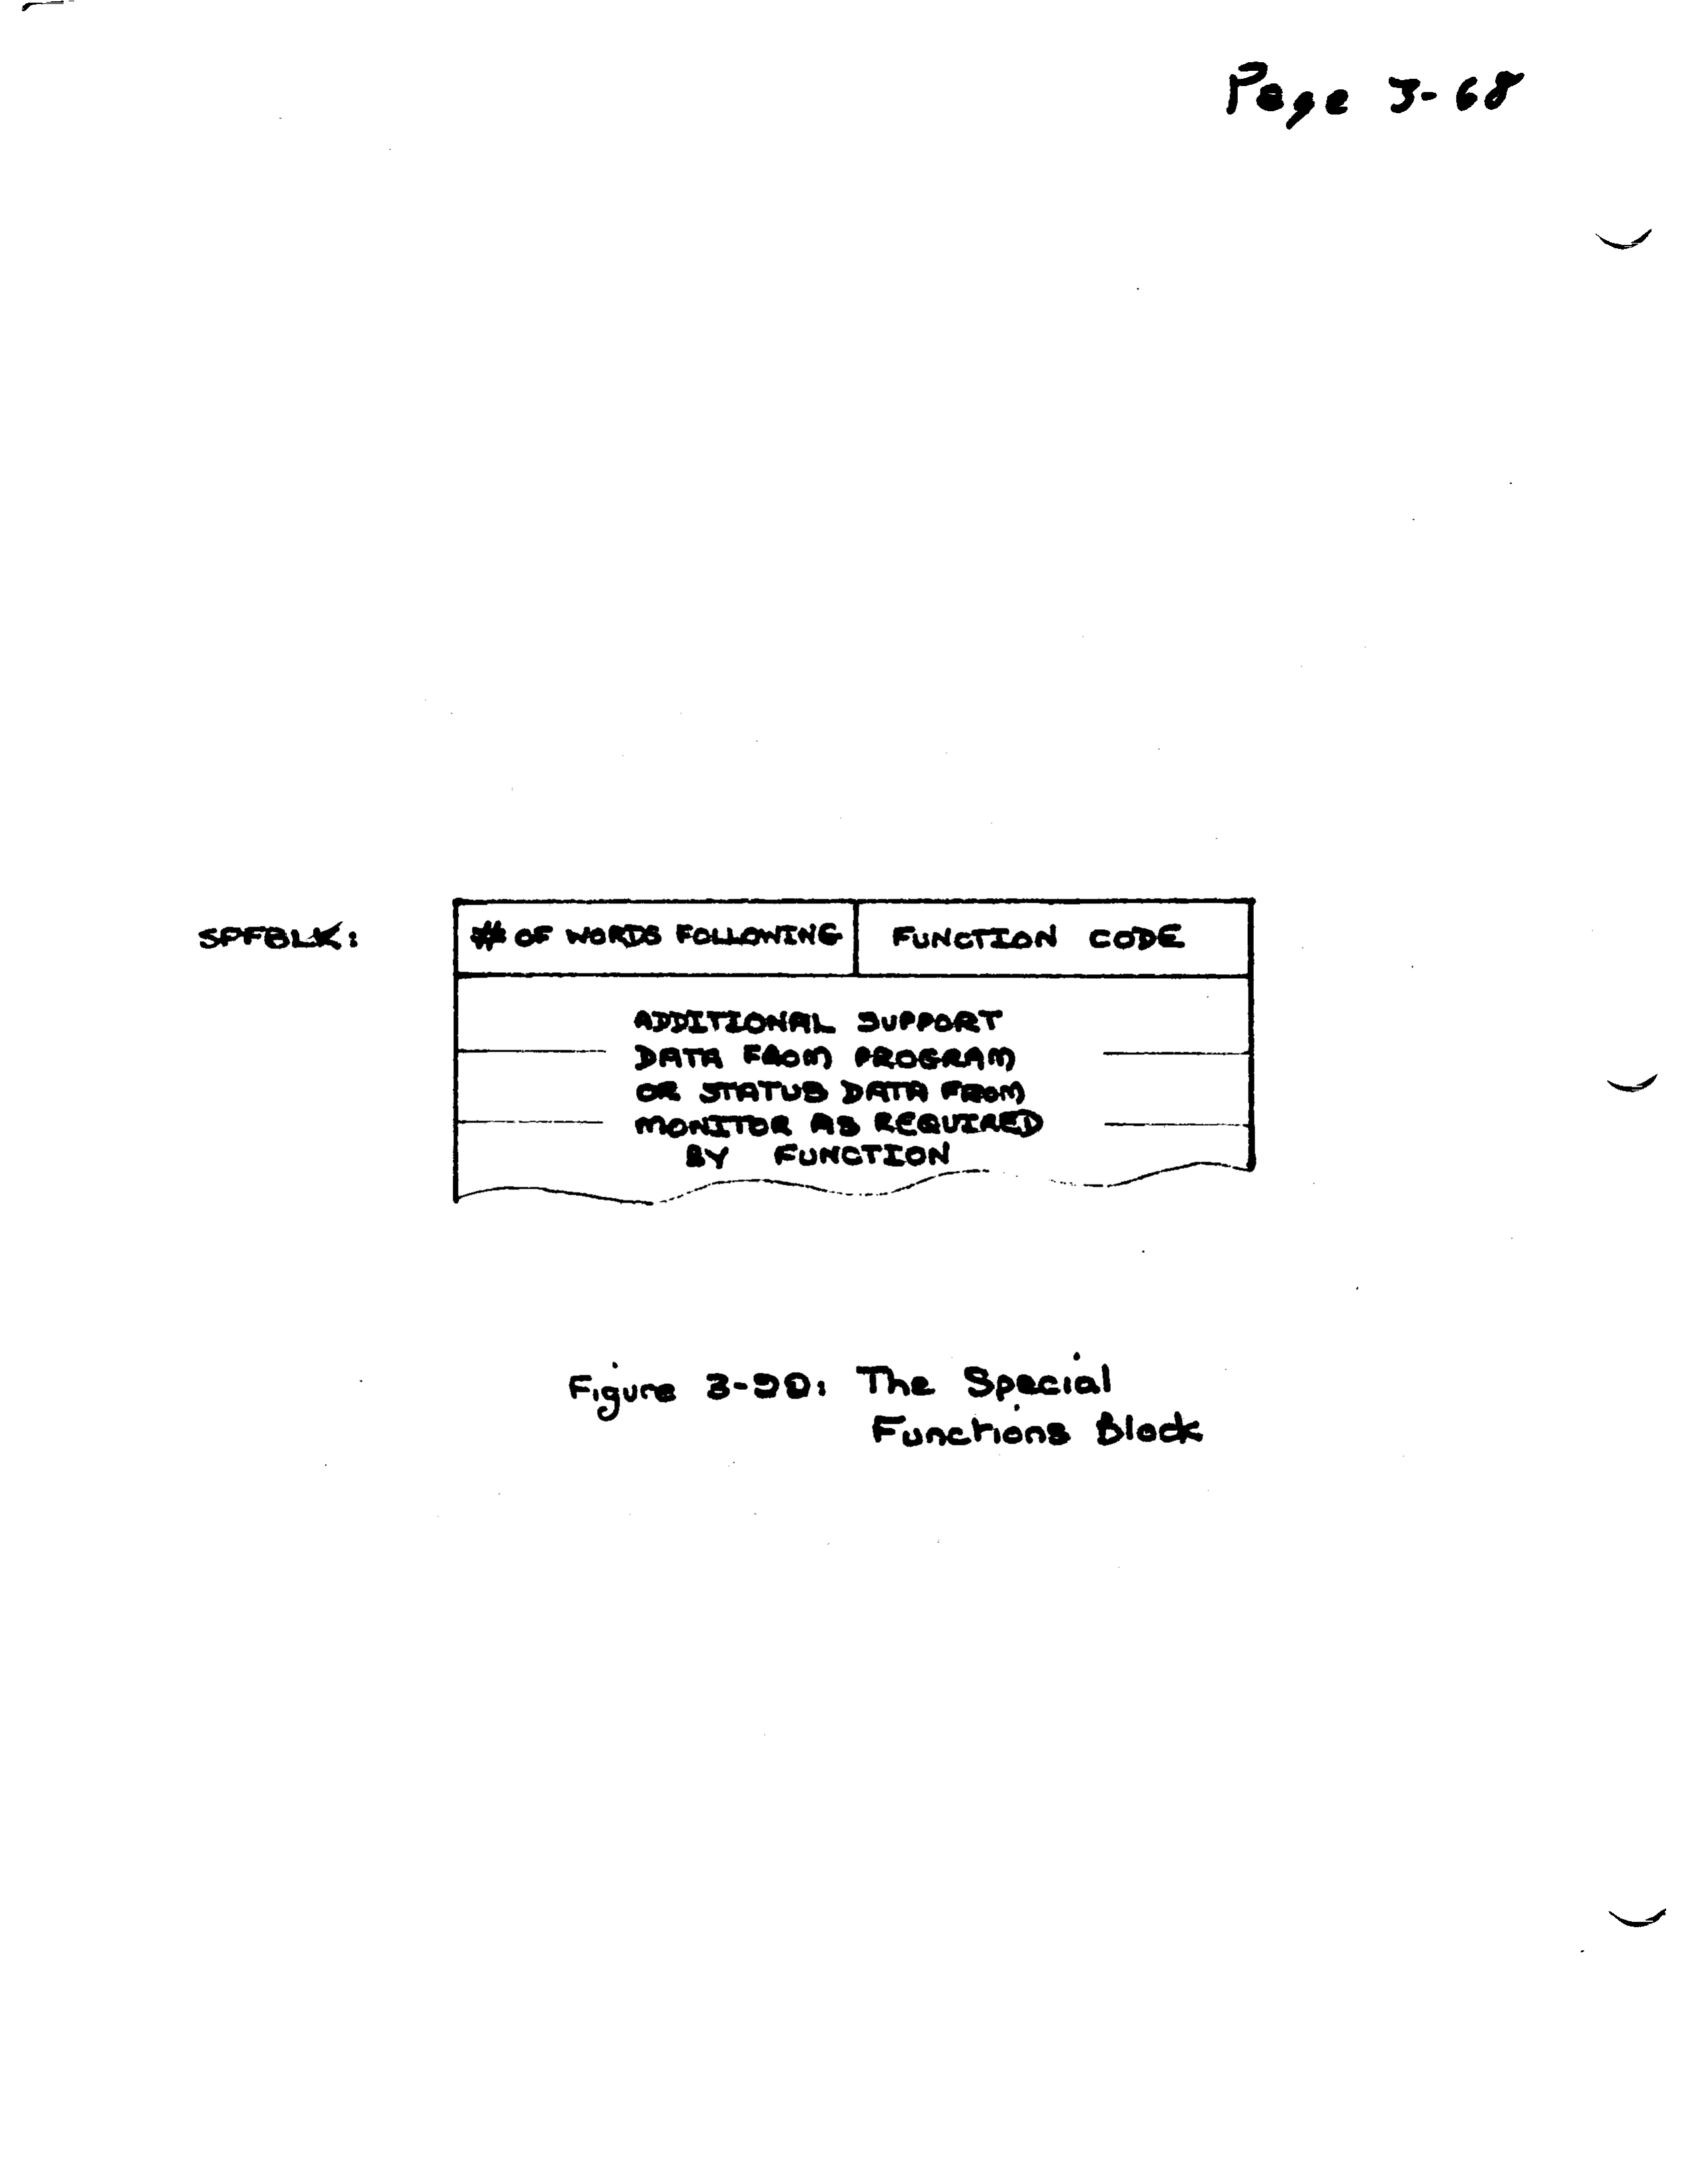 Page 3-68
SPFBLK: # OF WORDS FOLLOWING FUNCTION CODE
ADDITIONAL SUPPORT
DATA FROM PROGRAM
OR STATUS DATA FROM
MONITOR AS REQUIRED
BY FUNCTION
Figure The Special
Functions Block